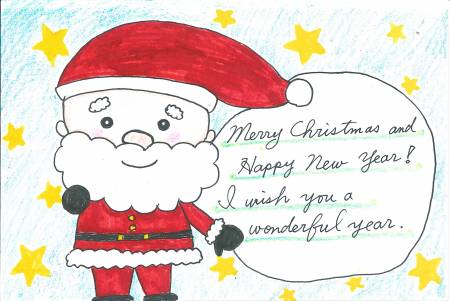 Merry Christmas and
Happy New Year!
I wish you a
wonderful year.